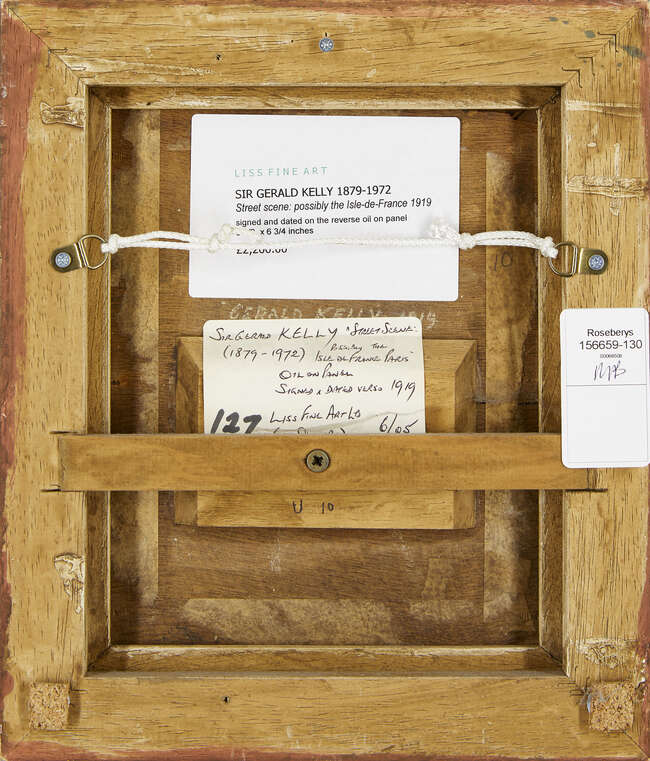 LISS FINE ART
SIR GERALD KELLY 1879-1972
Street scene: possibly the Isle-de-France 1919
signed and dated on the reverse oil on panel
x 6 3/4 inches
£2,200.00
10
GERALD KELLY
SIR GERALD KELLY "STREET SCENE:
(1879-1972) POSSIBLY THE
ISLE DE FRANCE PARIS"
OIL ON PANEL
SIGNED & DATED VERSO 1919
127 LISS FINE ART LD
6/05
U 10
Roseberys
156659-130